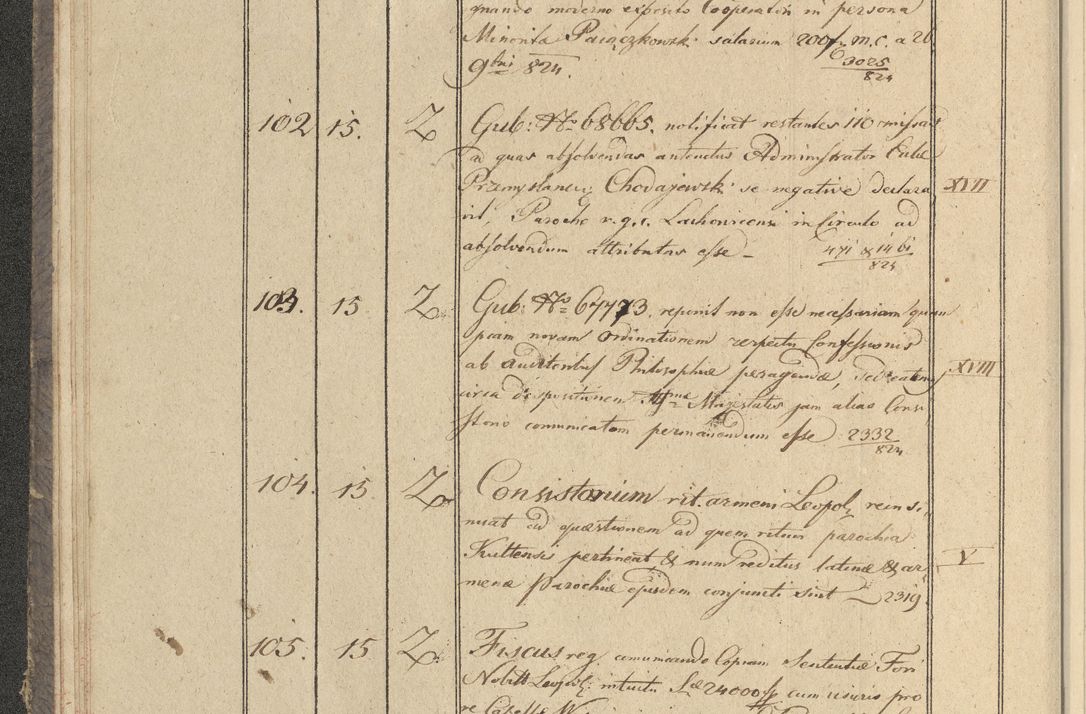 quando moderno exposito Cooperatori in persona
Minorita Paiączkowski salarium 200f m.C. a 26
9bri 824. 3025
824
102 15. Z Gub: No 68665. notificat restantes 110 missas
ad quas absolvendas Administrator Eccle
Przemyslanen; Chodajewski se negative declara XVII
vit, Parocho r.g.c. in Circulo ad
absolvendum attributas esse 471 & 1461
824
103. 15 Z Gub: No 67773. reponit non esse necessariam quam
piam novam Ordinationem respectu Confessionis
ab Auditoribus Philosophiæ peragendæ, sed eatenus XVIII
circa dispositionem Majestatis jam alias Consi
storio communicatam permanendum esse 2332
824
104. 15 Z Consistorium rit. armeni Leopol, reinsi,
nuat ad quæstionem ad quem ritum parochia
Kuttensis pertineat, & num reditus latinæ & ar V
menæ Parochiæ ejusdem conjuncti sint 2319.
105. 15 Z Fiscus reg. communicando Copiam Sententiæ Fori
Nobilt Leopol: intuitu 24000 f cum usuris pro